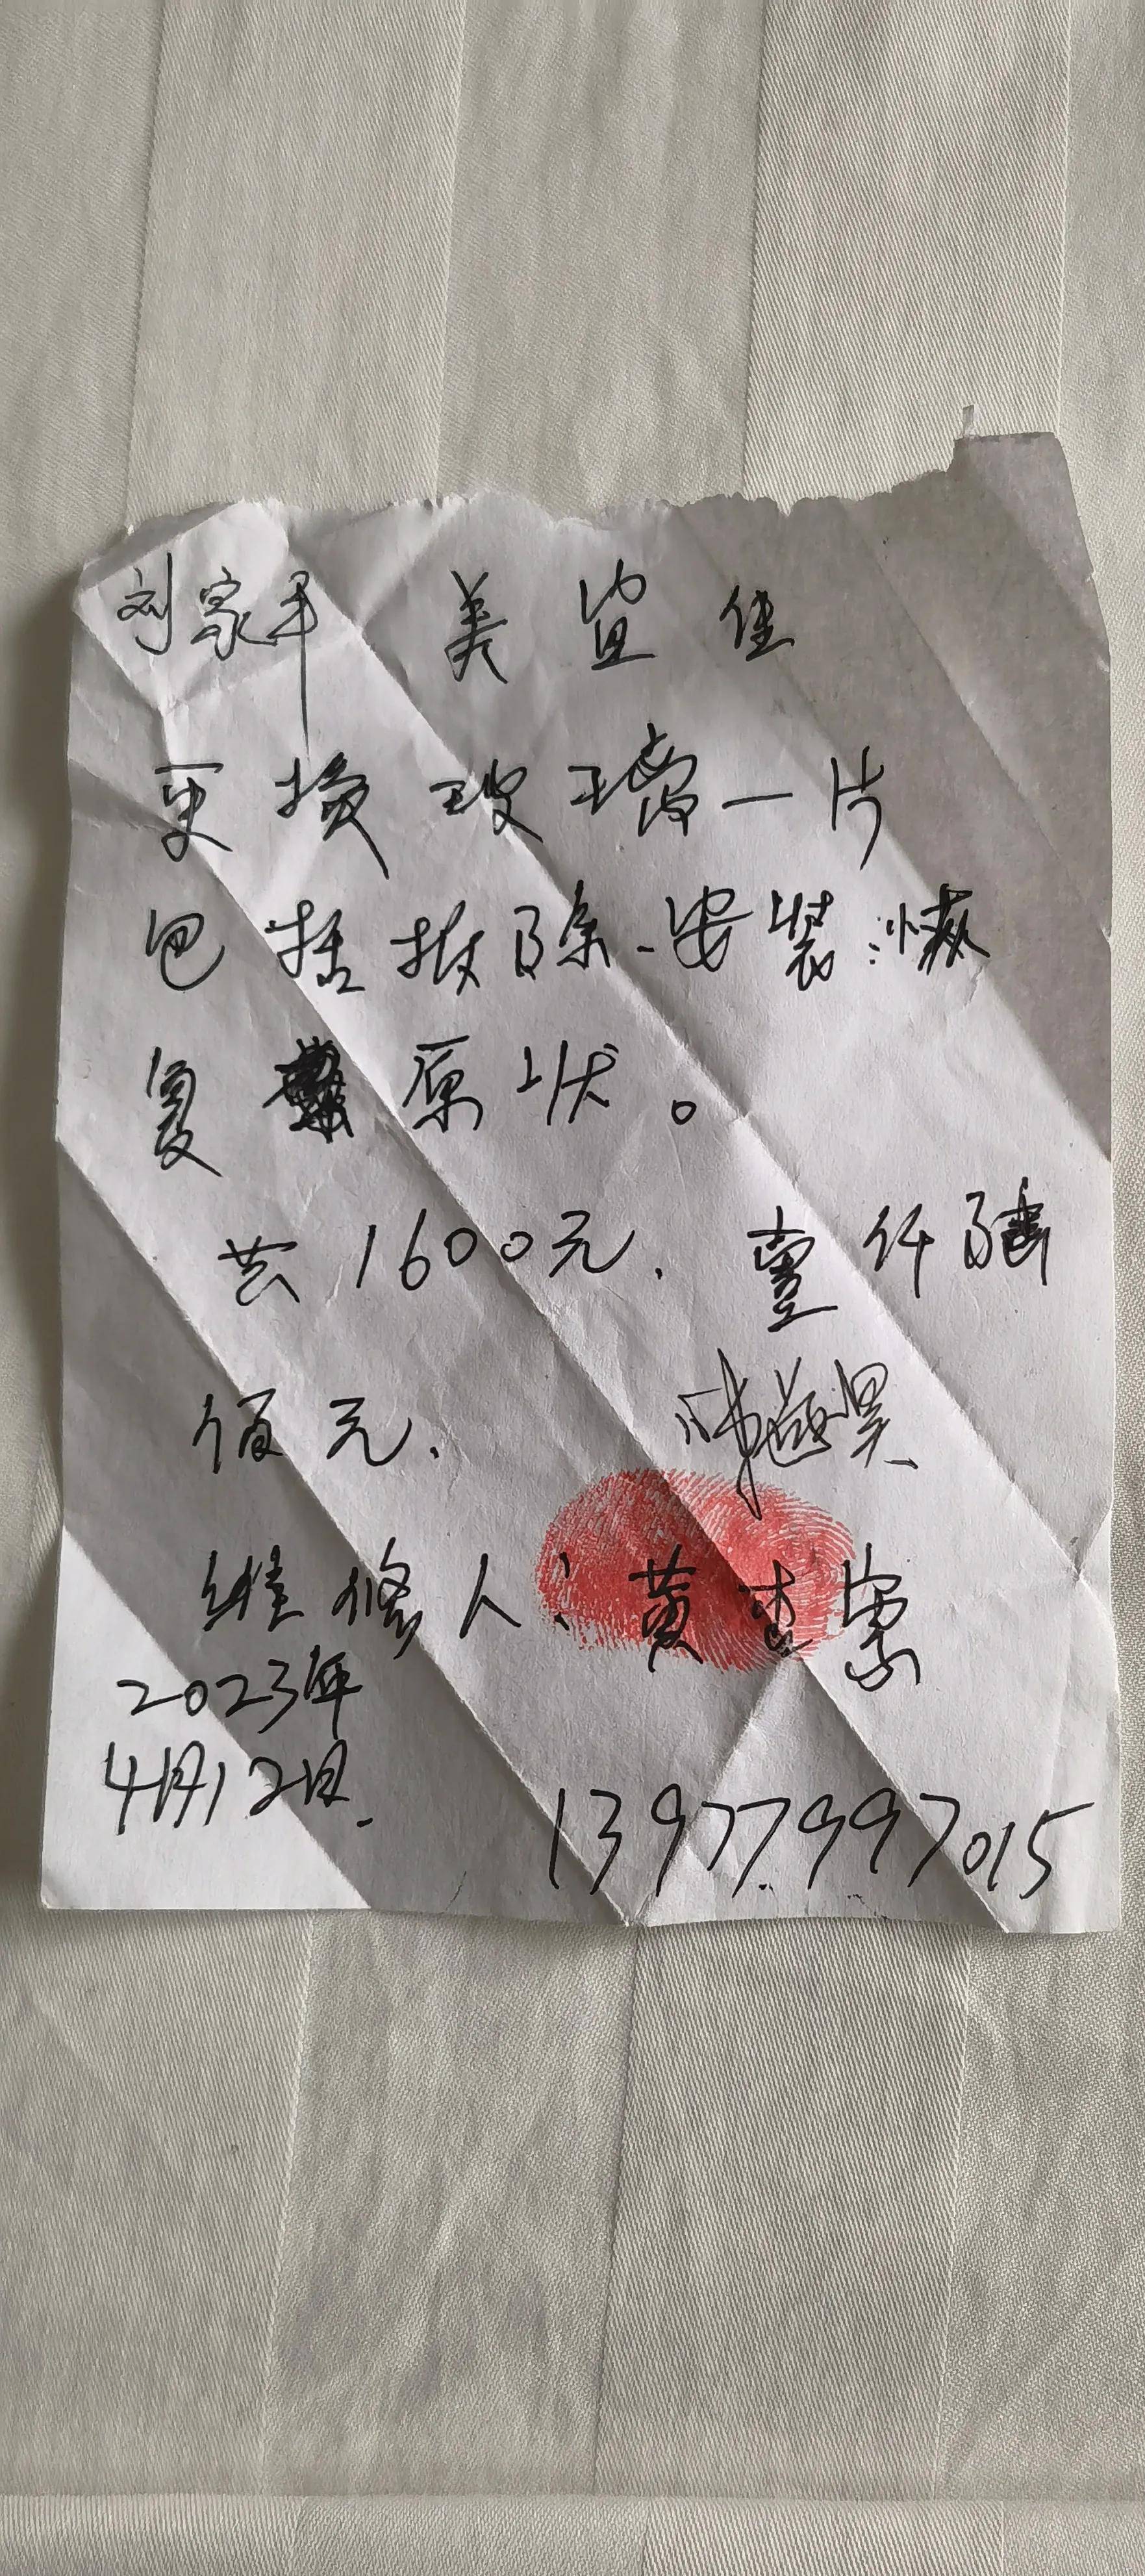 刘家平 美宜佳
更换玻璃一片
包括拆除、安装:恢
复原状。
共1600元、壹仟陆
佰元、
维修人:黄
2023年
4月12日.
13977997015